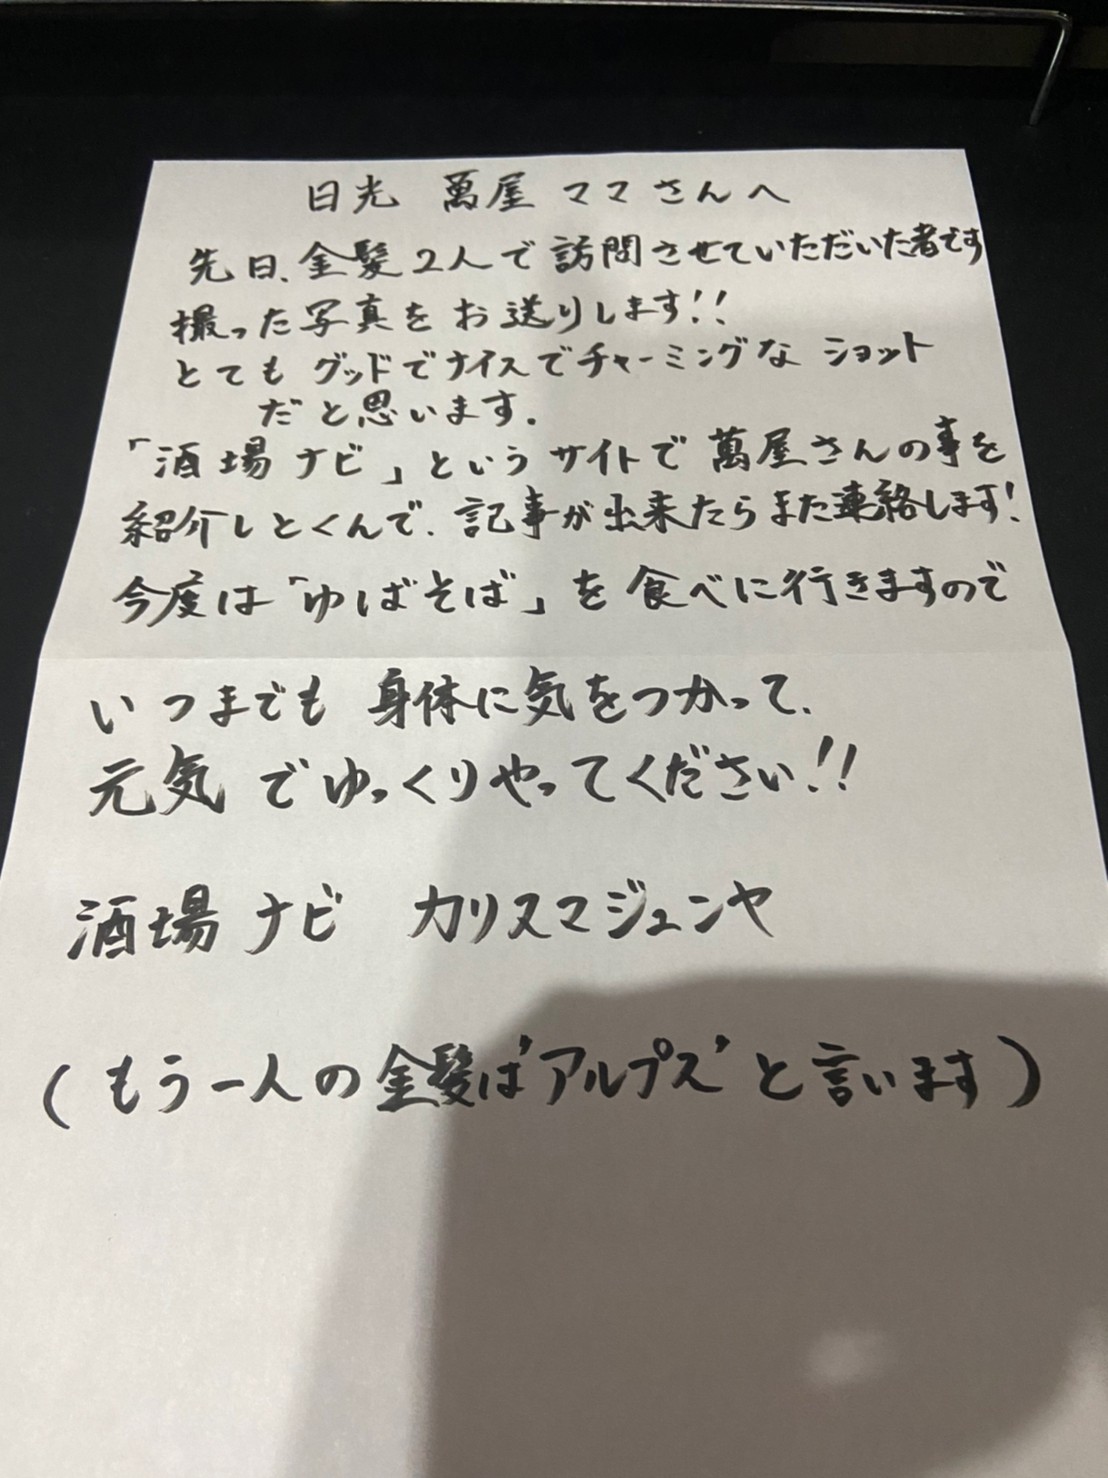 日光 萬屋 ママさんへ
先日、金髪2人で訪問させていただいた者です
撮った写真をお送りします!!
とてもグッドでナイスでチャーミングな ショット
だと思います.
「酒場ナビ」というサイトで萬屋さんの事を
紹介しとくんで、記事が出来たらまた連絡します!
今度は「ゆばそば」を食べに行きますので
いつまでも身体に気をつかって、
元気でゆっくりやってください!!
酒場ナビ カリスマジュンヤ
(もう一人の金髪は'アルプス'と言います)